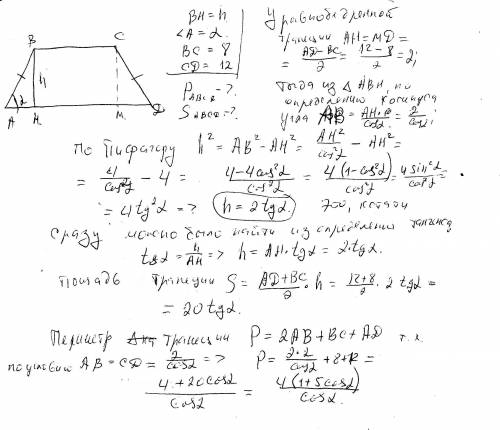 B
C
h
A
α
H.
M.
D
BH = h.
∠A = α.
BC = 8
CD = 12
P_ABCD - ?.
S_ABCD = ?.
У равнобедренной
трапеции AH = MD =
= (AD - BC)/2 = (12 - 8)/2 = 2;
Тогда из △ ABH, по
определению косинуса
угла AB = AH/cosα = 2/cosα.
По Пифагору h² = AB² - AH² = AH²/cos²α - AH² =
= 4/cos²α - 4 = (4 - 4cos²α)/cos²α = 4(1 - cos²α)/cos²α = 4sin²α/cos²α =
= 4tg²α => h = 2tgα. Это, кстати
сразу можно было найти из определения тангенса
tgα = h/AH => h = AH·tgα = 2·tgα.
Площадь трапеции S = (AD + BC)/2 · h = (12 + 8)/2 · 2tgα =
= 20tgα.
Периметр трапеции P = 2AB + BC + AD т.к.
по условию AB = CD = 2/cosα => P = 2·2/cosα + 8 + 12 =
(4 + 20cosα)/cosα = 4(1 + 5cosα)/cosα.